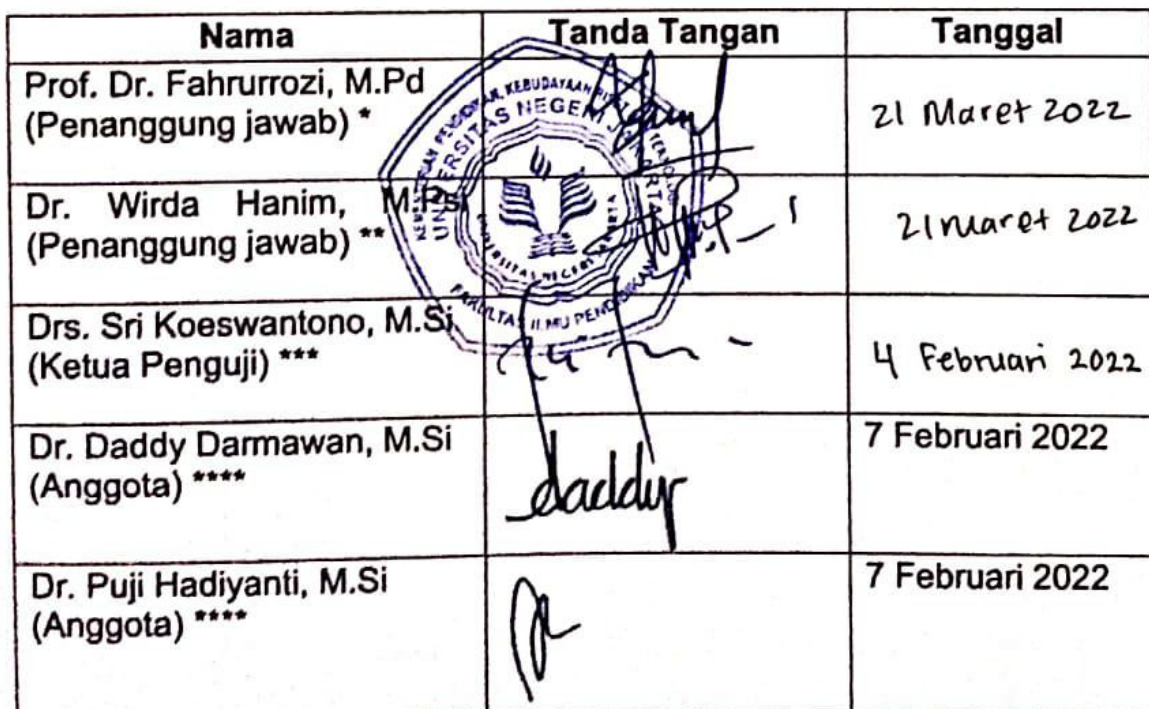 Nama Tanda Tangan Tanggal
Prof. Dr. Fahrurrozi, M.Pd
(Penanggung jawab) *
21 Maret 2022
Dr. Wirda Hanim, M.Psi
(Penanggung jawab) **
21 Maret 2022
Drs. Sri Koeswantono, M.Si
(Ketua Penguji) ***
4 Februari 2022
Dr. Daddy Darmawan, M.Si
(Anggota) ****
daddy
7 Februari 2022
Dr. Puji Hadiyanti, M.Si
(Anggota) ****
7 Februari 2022
KEMENTERIAN PENDIDIKAN, KEBUDAYAAN
UNIVERSITAS NEGERI JAKARTA
UNIVERSITAS NEGERI JAKARTA
FAKULTAS ILMU PENDIDIKAN